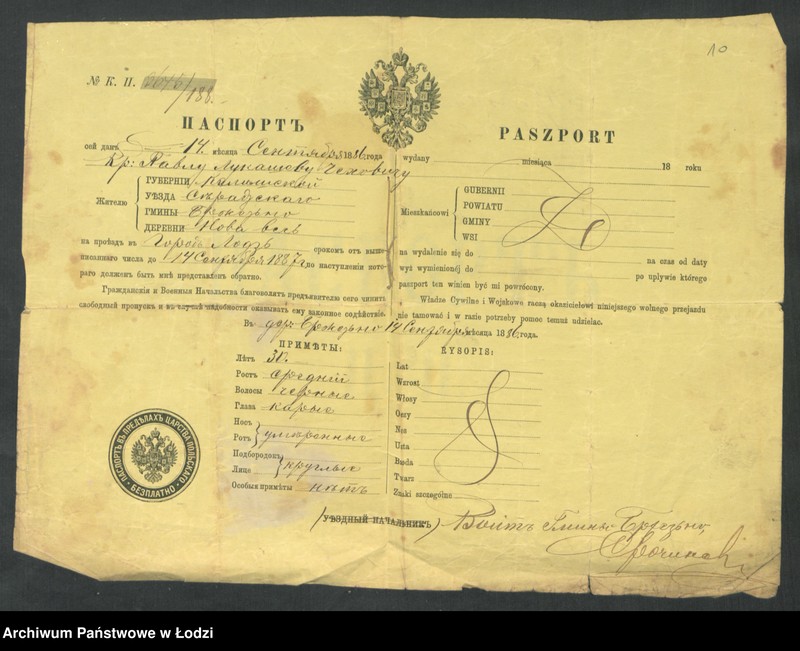 10
№ К. П. /188
ПАСПОРТЪ
PASZPORT
сей данъ 14 мѣсяца Сентября 1886 года
wydany miesiąca 18 roku
Кр: Павлу Лукашову Чеховичу
Жителю
ГУБЕРНІИ Калишской
УѢЗДА Сѣрадзскаго
ГМИНЫ
ДЕРЕВНИ Нова весь
Mieszkańcowi
GUBERNII
POWIATU
GMINY
WSI
на проѣздъ въ Городъ Лодзь срокомъ отъ выше-
писаннаго числа до 14 Сентября 1887 г по наступленіи кото-
раго долженъ быть мнѣ представленъ обратно.
na wydalenie się do na czas od daty
wyż wymienionéj do po upływie którego
paszport ten winien być mi powrócony.
Гражданскія и Военныя Начальства благоволятъ предъявителю сего чинить
свободный пропускъ и въ случаѣ надобности оказывать ему законное содѣйствіе.
Władze Cywilne i Wojskowe raczą okazicielowi niniejszego wolnego przejazdu
nie tamować i w razie potrzeby pomoc temuż udzielac.
Въ дер: 14 Сентября мѣсяца 1886 года.
ПРИМѢТЫ:
Лѣтъ
Ростъ средній
Волосы черные
Глаза карые
Носъ
Ротъ умѣренные
Подбородокъ
Лице круглые
Особыя примѣты нѣтъ
RYSOPIS:
Lat
Wzrost
Włosy
Oczy
Nos
Usta
Broda
Twarz
Znaki szczególne
ПАСПОРТЪ ВЪ ПРЕДѢЛАХЪ ЦАРСТВА ПОЛЬСКАГО
БЕЗПЛАТНО
(УѢЗДНЫЙ НАЧАЛЬНИКЪ) Войтъ Гмины
Archiwum Państwowe w Łodzi